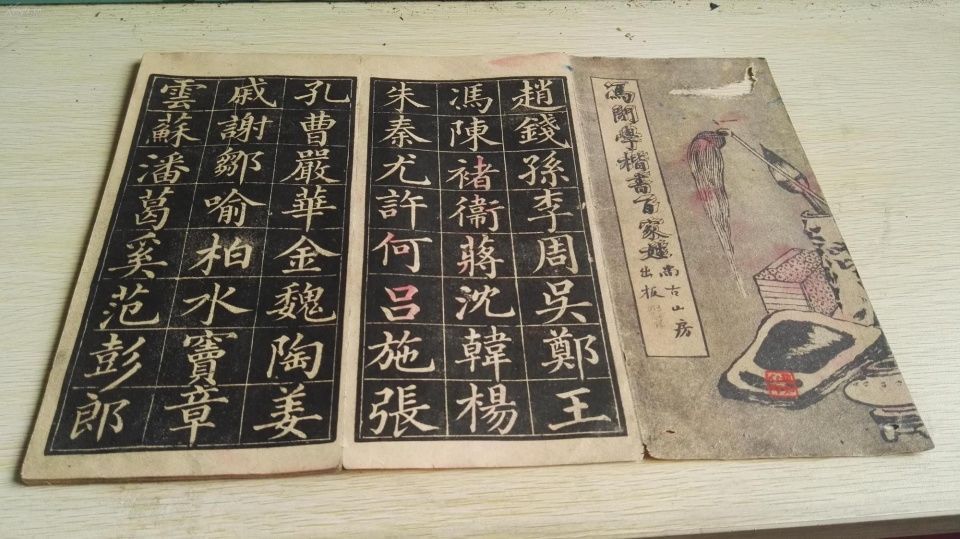 馮閣學楷書百家姓
尚古山房
出板
趙錢孫李周吳鄭王
馮陳褚衞蔣沈韓楊
朱秦尤許何呂施張
孔曹嚴華金魏陶姜
戚謝鄒喻柏水竇章
雲蘇潘葛奚范彭郎